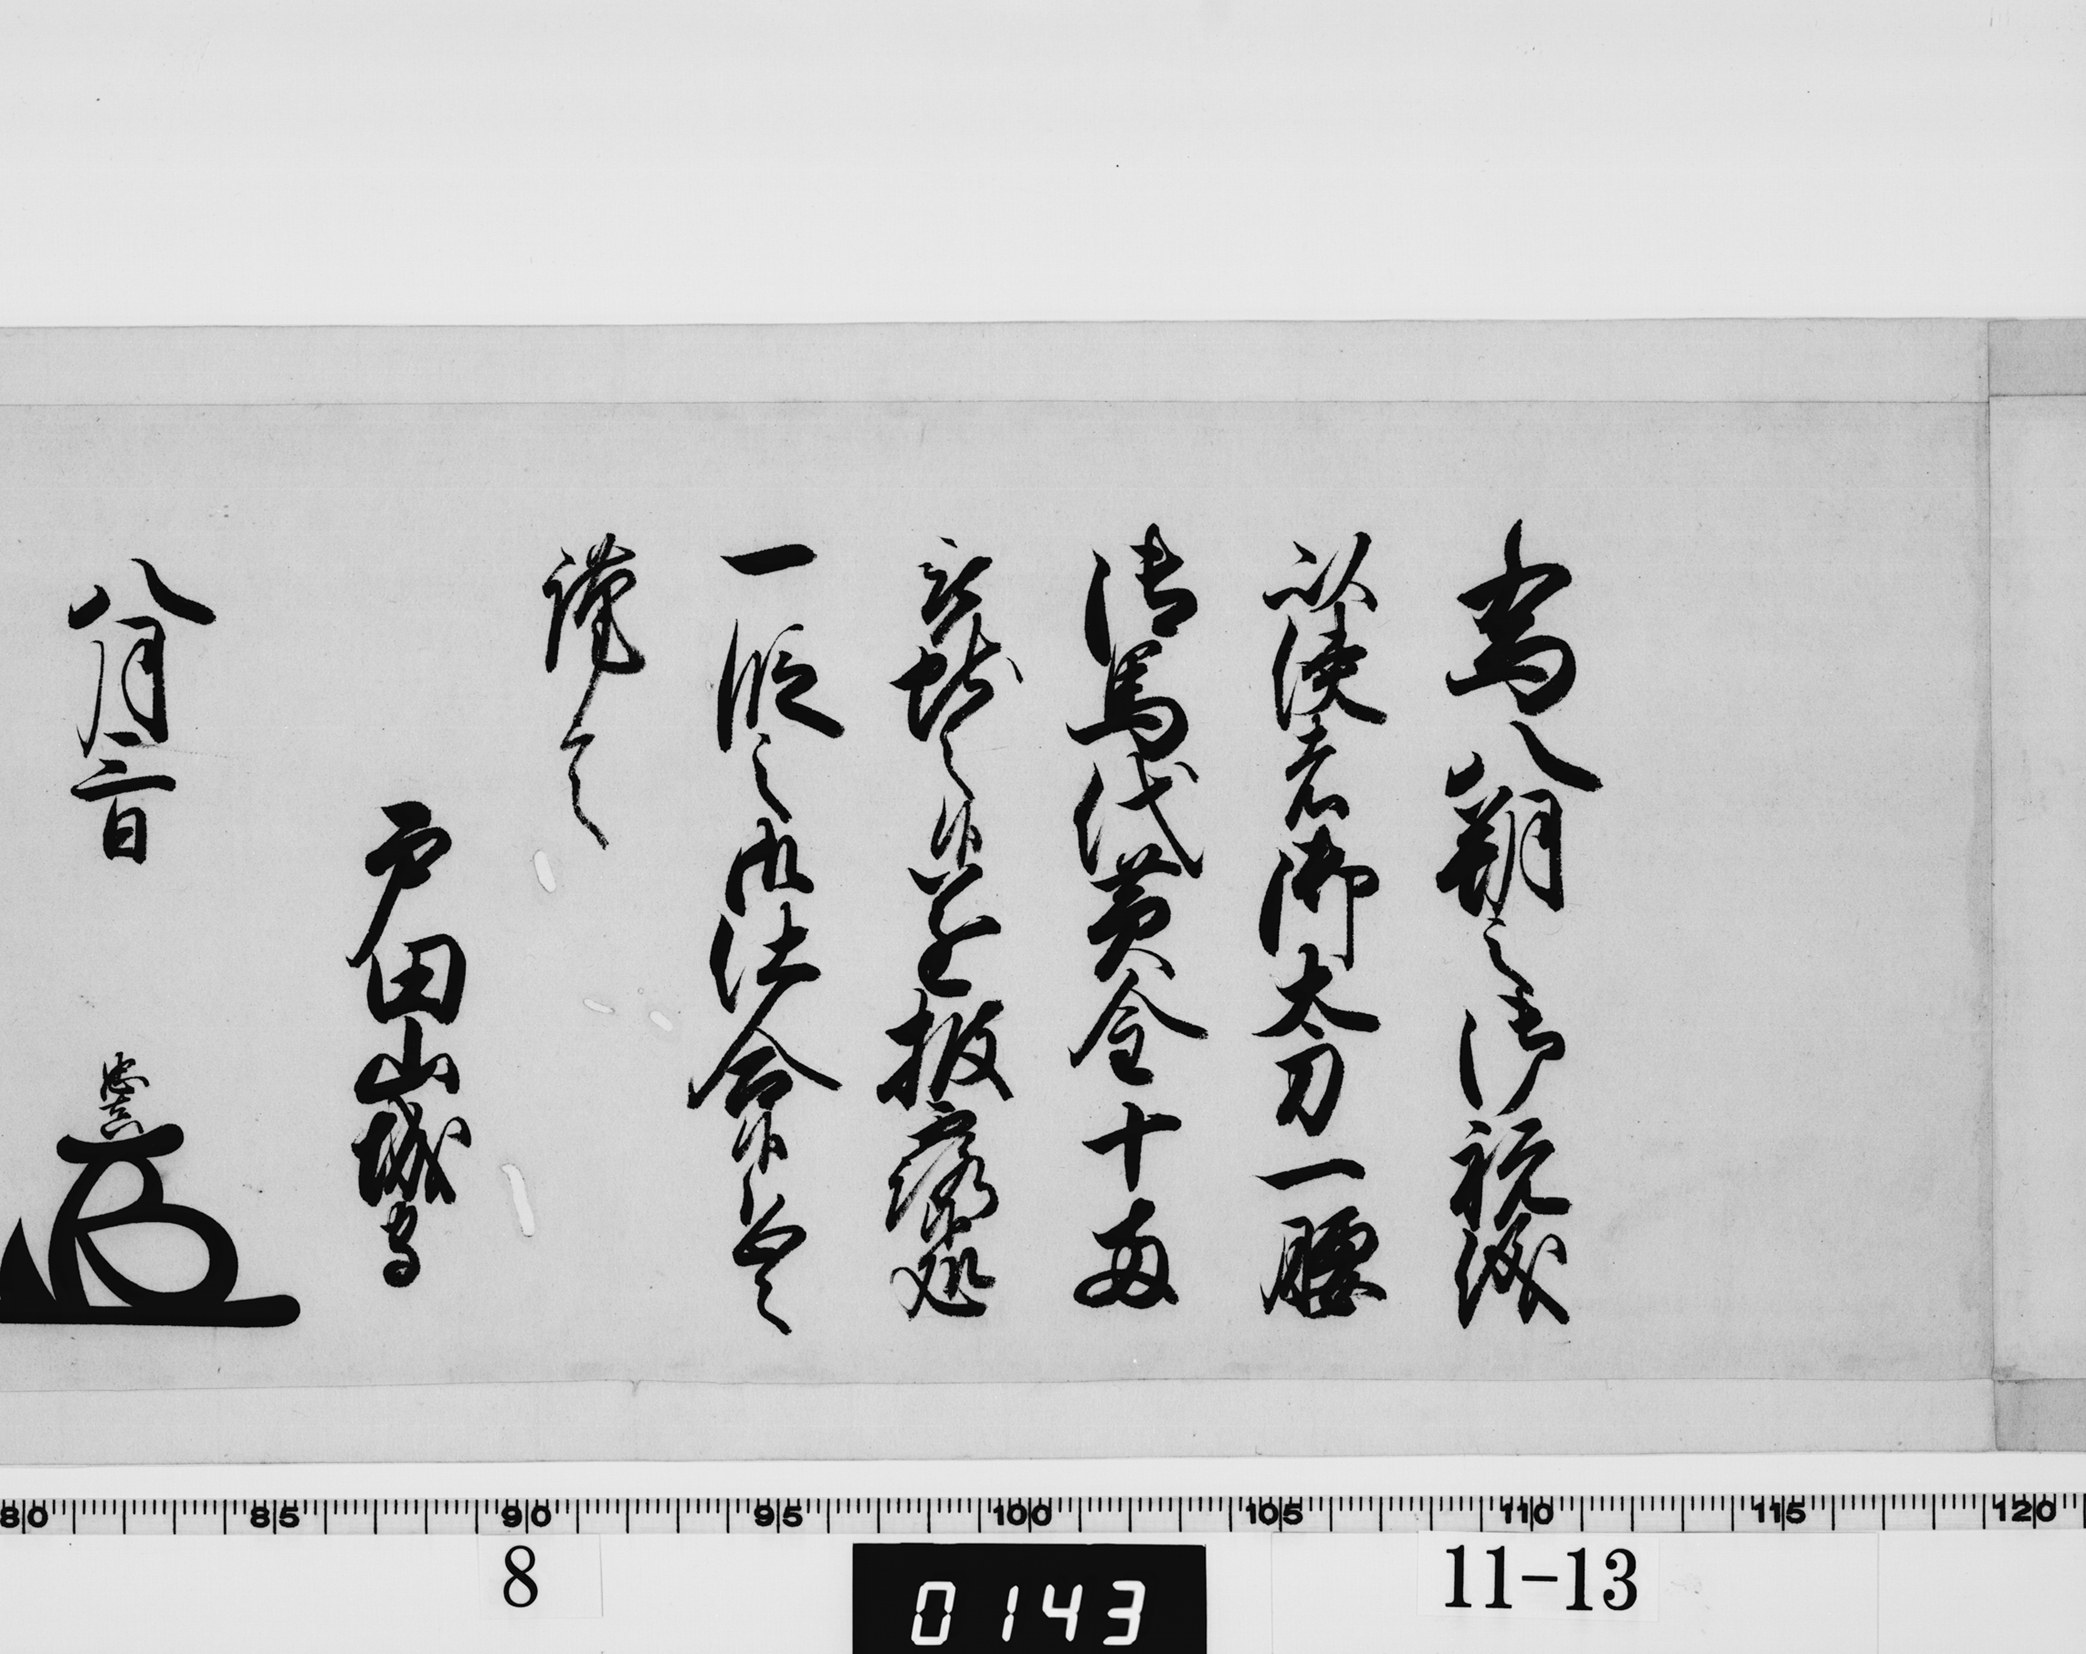 為八朔之御祝儀
以使者御太刀一腰
御馬代黄金十両
献之候遂披露処
一段之御仕合候恐々
謹言
戸田山城守
八月二日
忠真
80 85 90 95 100 105 110 115 120
8
0143
11-13